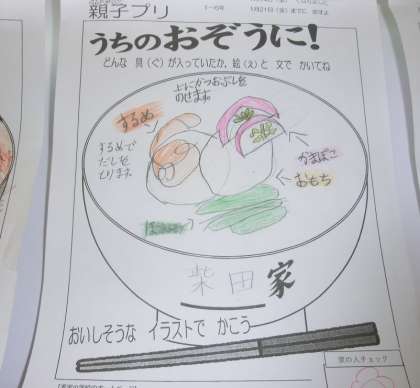 親子プリ
1～6年
1月21日(金)までに 出すよ
うちのおぞうに!
どんな 具(ぐ)が入っていたか、絵(え)と 文で かいてね
上にかつおぶしを
のせます
するめ
するめで
だしを
とります
かまぼこ
おもち
柴田家
おいしそうな イラストで かこう
家の人チェック